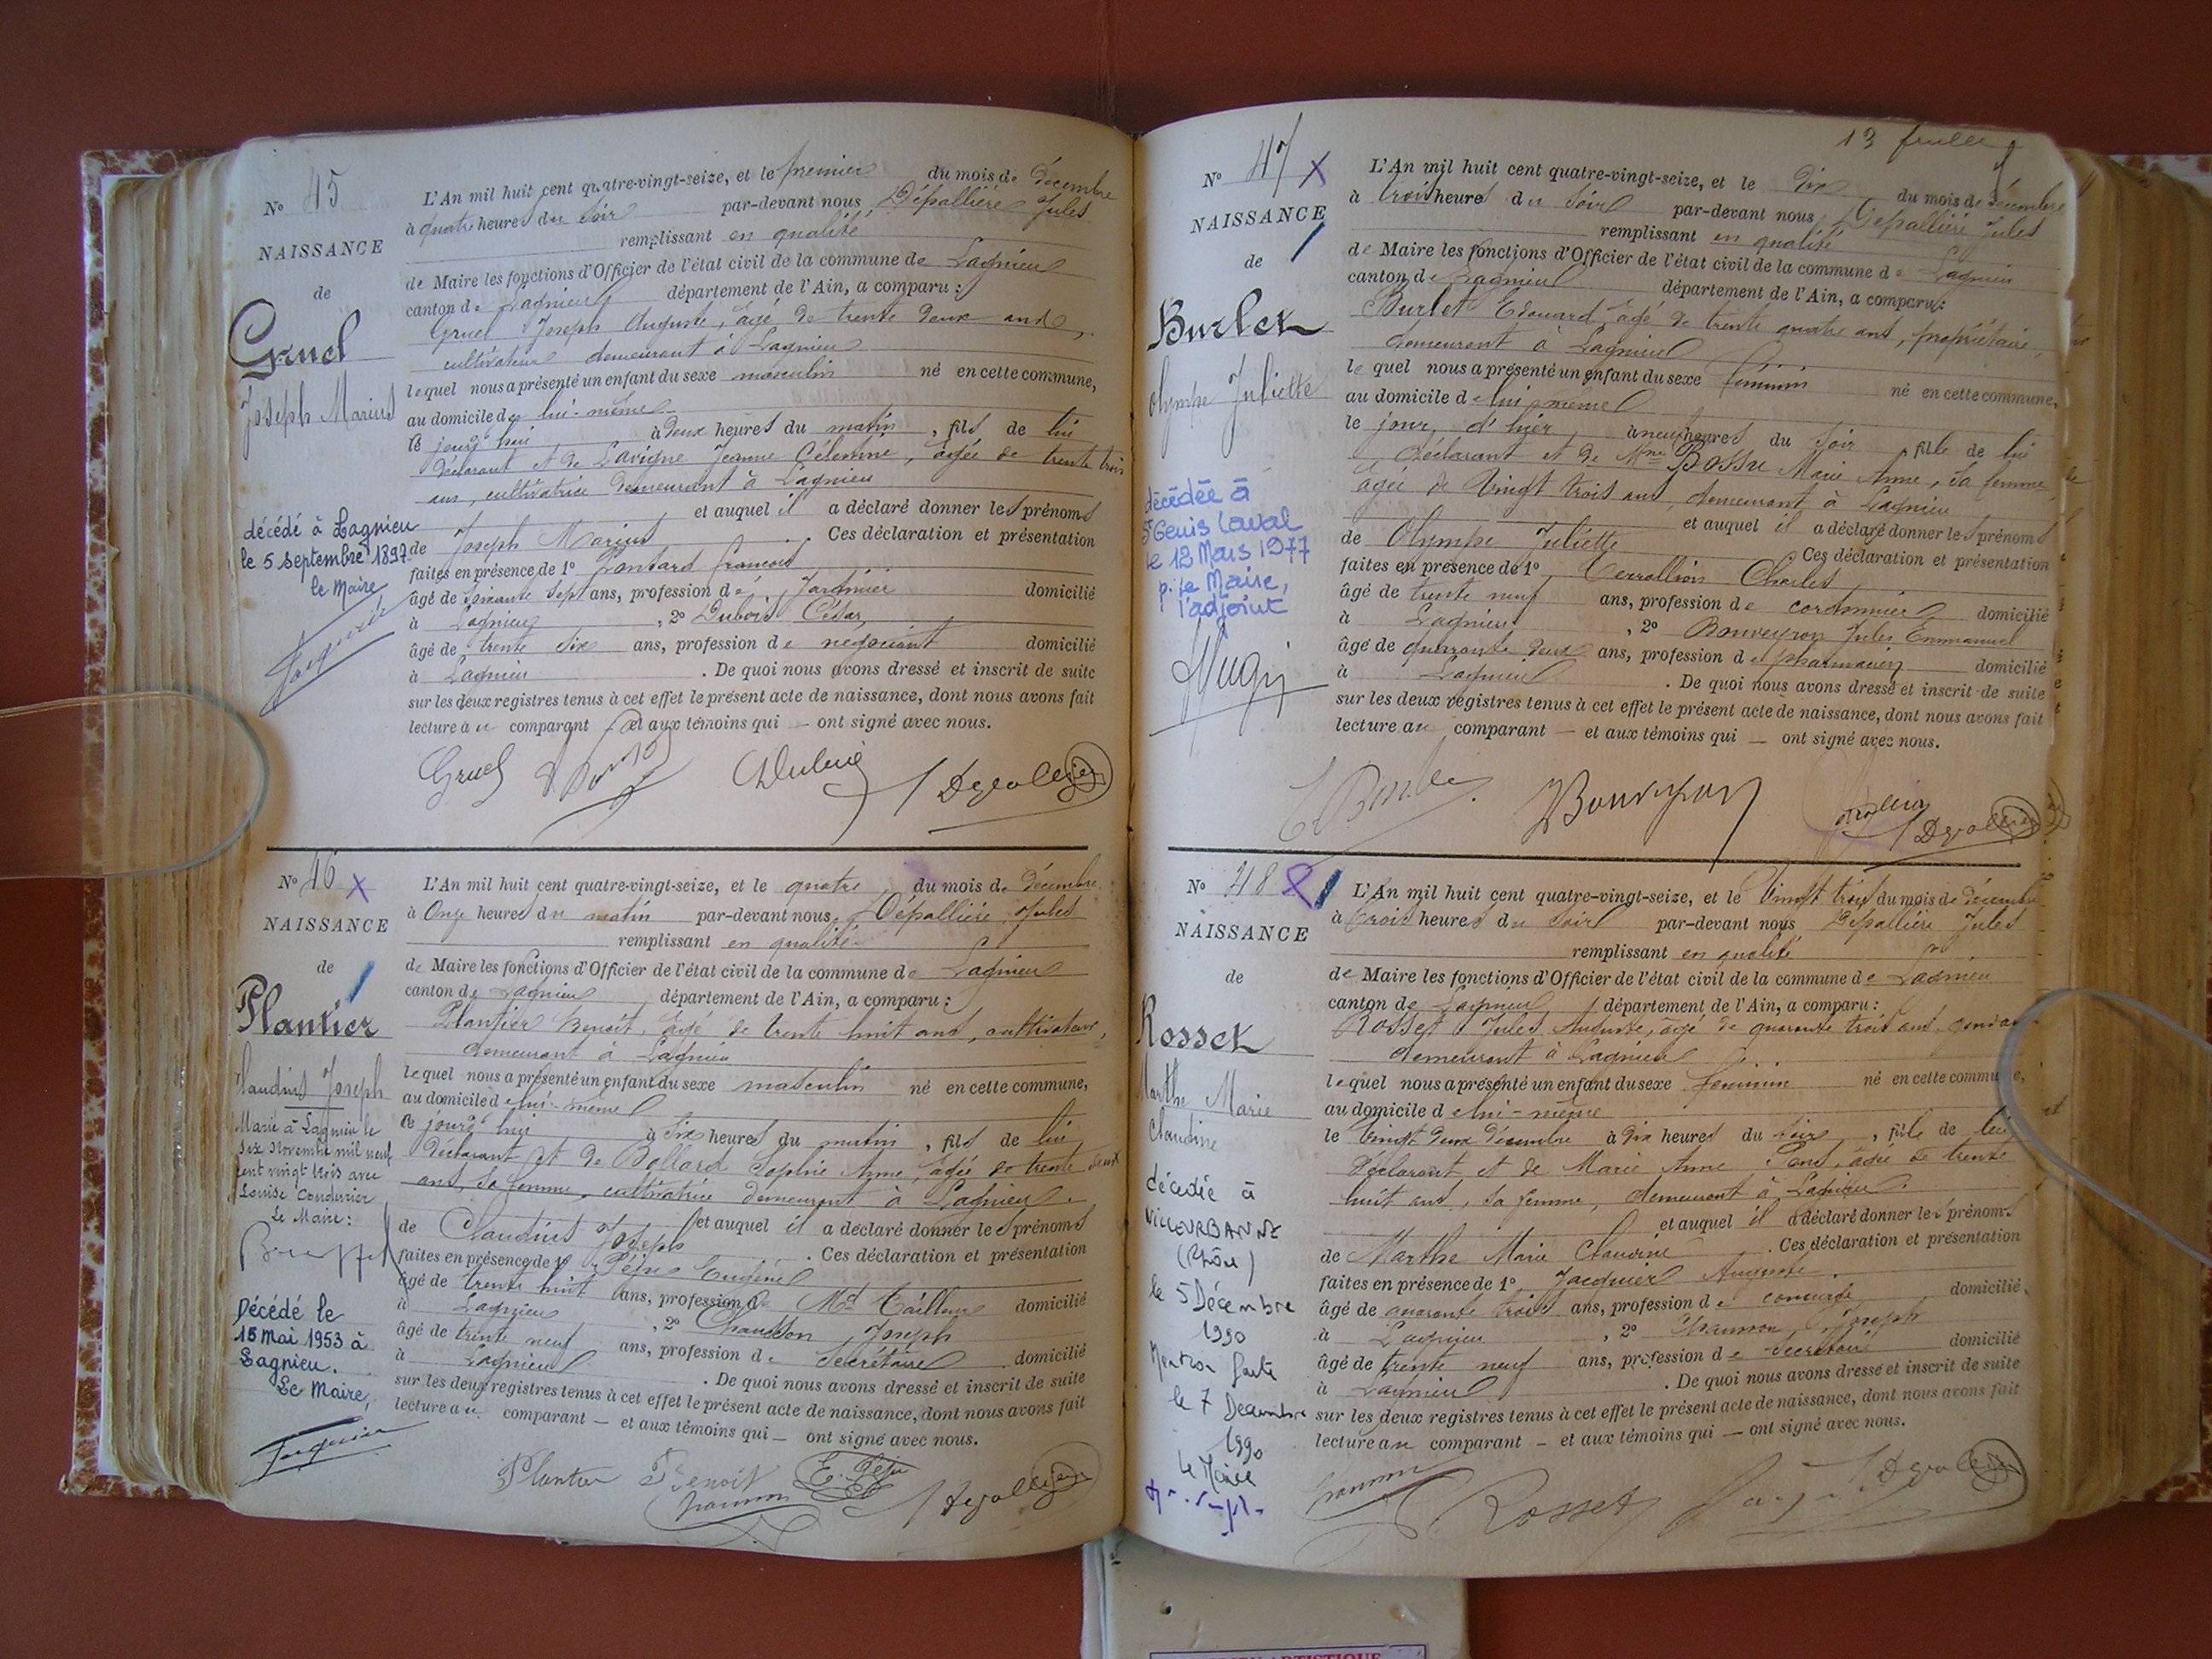 Nº 45
NAISSANCE
de
Gruel
Joseph Marius
décédé à Lagnieu
le 5 septembre 1897
le Maire
L'An mil huit cent quatre-vingt-seize, et le premier du mois de Décembre
à quatre heures du soir par-devant nous Dépallière Jules
remplissant en qualité
de Maire les fonctions d'Officier de l'état civil de la commune de Lagnieu
canton de Lagnieu département de l'Ain, a comparu :
Gruel Joseph Auguste, âgé de trente deux ans,
cultivateur demeurant à Lagnieu
lequel nous a présenté un enfant du sexe masculin né en cette commune,
au domicile de lui-même
ce jourd'hui à deux heures du matin, fils de lui
déclarant et de Lavigne Jeanne Célennie, âgée de trente trois
ans, cultivatrice demeurant à Lagnieu
et auquel il a déclaré donner les prénoms
de Joseph Marius Ces déclaration et présentation
faites en présence de 1º François
âgé de soixante sept ans, profession de Jardinier domicilié
à Lagnieu, 2º Dubois César
âgé de trente six ans, profession de négociant domicilié
à Lagnieu. De quoi nous avons dressé et inscrit de suite
sur les deux registres tenus à cet effet le présent acte de naissance, dont nous avons fait
lecture au comparant et aux témoins qui — ont signé avec nous.
Gruel
Nº 46 X
NAISSANCE
de
Plantier
Claudius Joseph
Marié à Lagnieu le
six Novembre mil neuf
cent vingt trois avec
Louise Coudurier
Le Maire :
Décédé le
15 mai 1953 à
Lagnieu.
Le Maire,
L'An mil huit cent quatre-vingt-seize, et le quatre du mois de Décembre
à Onze heures du matin par-devant nous Dépallière Jules
remplissant en qualité
de Maire les fonctions d'Officier de l'état civil de la commune de Lagnieu
canton de Lagnieu département de l'Ain, a comparu :
Plantier Benoit, âgé de trente huit ans, cultivateur,
demeurant à Lagnieu
lequel nous a présenté un enfant du sexe masculin né en cette commune,
au domicile de lui-même
ce jourd'hui à six heures du matin, fils de lui
déclarant et de Bollard Sophie Anne, âgée de trente deux
ans, sa femme, cultivatrice demeurant à Lagnieu.
et auquel il a déclaré donner les prénoms
de Claudius Joseph. Ces déclaration et présentation
faites en présence de 1º Péju Eugène
âgé de trente huit ans, profession de Md Tailleur domicilié
à Lagnieu, 2º Joseph
âgé de trente neuf ans, profession de Secrétaire domicilié
à Lagnieu. De quoi nous avons dressé et inscrit de suite
sur les deux registres tenus à cet effet le présent acte de naissance, dont nous avons fait
lecture au comparant — et aux témoins qui — ont signé avec nous.
Plantier Benoit E. Péju
Nº 47 X
NAISSANCE
de
Burlet
Olympe Juliette
décédée à
St Genis Laval
le 12 Mars 1977
p. le Maire,
l'adjoint
L'An mil huit cent quatre-vingt-seize, et le dix du mois de Décembre
à trois heures du soir par-devant nous Dépallière Jules
remplissant en qualité
de Maire les fonctions d'Officier de l'état civil de la commune de Lagnieu
canton de Lagnieu département de l'Ain, a comparu :
Burlet Edouard, âgé de trente quatre ans, propriétaire,
demeurant à Lagnieu
lequel nous a présenté un enfant du sexe féminin né en cette commune,
au domicile de lui même
le jour d'hier à neuf heures du soir, fille de lui
déclarant et de Mme Bossu Marie Anne, sa femme,
âgée de Vingt trois ans, demeurant à Lagnieu
et auquel il a déclaré donner les prénoms
de Olympe Juliette Ces déclaration et présentation
faites en présence de 1º Charles
âgé de trente neuf ans, profession de cordonnier domicilié
à Lagnieu, 2º Bouveyron Jules Emmanuel
âgé de quarante deux ans, profession de pharmacien domicilié
à Lagnieu. De quoi nous avons dressé et inscrit de suite
sur les deux registres tenus à cet effet le présent acte de naissance, dont nous avons fait
lecture au comparant — et aux témoins qui — ont signé avec nous.
Bouveyron
Nº 48
NAISSANCE
de
Rosset
Marthe Marie
Claudine
décédée à
VILLEURBANNE
(Rhône)
le 5 Décembre
1990
Mention faite
le 7 Decembre
1990
Le Maire
L'An mil huit cent quatre-vingt-seize, et le Vingt trois du mois de décembre
à trois heures du soir par-devant nous Dépallière Jules
remplissant en qualité
de Maire les fonctions d'Officier de l'état civil de la commune de Lagnieu
canton de Lagnieu département de l'Ain, a comparu :
Rosset Jules Auguste, âgé de quarante trois ans,
demeurant à Lagnieu
lequel nous a présenté un enfant du sexe féminin né en cette commune,
au domicile de lui-même
le Vingt deux décembre à dix heures du soir, fille de lui
déclarant et de Marie Anne, âgée de trente
huit ans, sa femme, demeurant à Lagnieu.
et auquel il a déclaré donner les prénoms
de Marthe Marie Claudine. Ces déclaration et présentation
faites en présence de 1º Jacquier Auguste.
âgé de quarante trois ans, profession de concierge domicilié,
à Lagnieu, 2º Joseph
âgé de trente neuf ans, profession de secrétaire domicilié
à Lagnieu. De quoi nous avons dressé et inscrit de suite
sur les deux registres tenus à cet effet le présent acte de naissance, dont nous avons fait
lecture au comparant — et aux témoins qui — ont signé avec nous.
Rosset